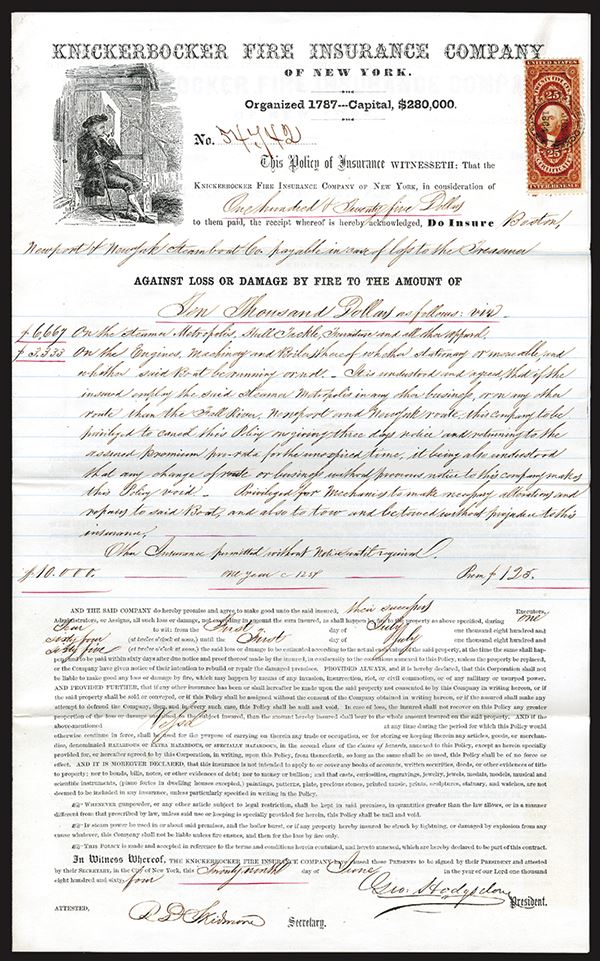 KNICKERBOCKER FIRE INSURANCE COMPANY
OF NEW YORK.
Organized 1787---Capital, $280,000.
UNITED STATES
25
25
INTER. REVENUE
No. 54,742
This Policy of Insurance WITNESSETH: That the
KNICKERBOCKER FIRE INSURANCE COMPANY OF NEW YORK, in consideration of
One hundred & Twenty five Dolls
to them paid, the receipt whereof is hereby acknowledged, Do Insure Boston,
Newport & New York Steamboat Co. payable in case of loss to the Treasurer
AGAINST LOSS OR DAMAGE BY FIRE TO THE AMOUNT OF
Ten Thousand Dollars as follows: viz
$6,667 On the Steamer Metropolis, Hull Tackle, Furniture and all other apparel.
$3,333 On the Engines, Machinery and Boilers thereof whether stationary or moveable, and
whether said Boat be running or not - It is understood and agreed, that if the
insured employ the said Steamer Metropolis in any other business, or on any other
route than the Fall River, Newport and New York route, this company to be
privileged to cancel this Policy on giving three days notice and returning to the
assured premium pro-rata for the unexpired time, it being also understood
that any change of route or business without previous notice to this company makes
this Policy void - Privileged for Mechanics to make necessary alterations and
repairs to said Boat, and also to tow and be towed without prejudice to this
insurance.
Other Insurance permitted without Notice until required.
$10.000. one year Prem $125.
AND THE SAID COMPANY do hereby promise and agree to make good unto the said insured, their Executors,
Administrators, or Assigns, all such loss or damage, not exceeding in amount the sum insured, as shall happen by fire to the property as above specified, during one
Year to wit: from the First day of July one thousand eight hundred and
sixty four (at twelve o'clock at noon,) until the First day of July one thousand eight hundred and
sixty five (at twelve o'clock at noon,) the said loss or damage to be estimated according to the actual cash value of the said property, at the time the same shall hap-
pen; and to be paid within sixty days after due notice and proof thereof made by the insured, in conformity to the conditions annexed to this Policy, unless the property be replaced,
or the Company have given notice of their intention to rebuild or repair the damaged premises. PROVIDED ALWAYS, and it is hereby declared, that this Corporation shall not
be liable to make good any loss or damage by fire, which may happen by means of any invasion, insurrection, riot, or civil commotion, or of any military or usurped power.
AND PROVIDED FURTHER, that if any other insurance has been or shall hereafter be made upon the said property not consented to by this Company in writing hereon, or if
the said property shall be sold or conveyed, or if this Policy shall be assigned without the consent of the Company obtained in writing hereon, or if the assured shall make any
attempt to defraud the Company, then, and in every such case, this Policy shall be null and void. In case of loss, the insured shall not recover on this Policy any greater
proportion of the loss or damage sustained to the subject insured, than the amount hereby insured shall bear to the whole amount insured on the said property. AND if the
above-mentioned Vessel at any time during the period for which this Policy would
otherwise continue in force, shall be used for the purpose of carrying on therein any trade or occupation, or for storing or keeping therein any articles, goods, or merchan-
dise, denominated HAZARDOUS or EXTRA HAZARDOUS, or SPECIALLY HAZARDOUS, in the second class of the classes of hazards, annexed to this Policy, except as herein specially
provided for, or hereafter agreed to by this Corporation, in writing, upon this Policy, from thenceforth, so long as the same shall be so used, this Policy shall be of no force or
effect. AND IT IS MOREOVER DECLARED, that this insurance is not intended to apply to or cover any books of account, written securities, deeds, or other evidences of title
to property; nor to bonds, bills, notes, or other evidences of debt; nor to money or bullion; and that casts, curiosities, engravings, jewelry, jewels, medals, models, musical and
scientific instruments, (piano fortes in dwelling houses excepted,) paintings, patterns, plate, precious stones, printed music, prints, sculptures, statuary, and watches, are not
deemed to be included in any insurance, unless particularly specified in writing in the Policy.
WHENEVER gunpowder, or any other article subject to legal restriction, shall be kept in said premises, in quantities greater than the law allows, or in a manner
different from that prescribed by law, unless such use or keeping is specially provided for herein, this Policy shall be null and void.
If steam power be used in or about said premises, and the boiler burst, or if any property hereby insured be struck by lightning, or damaged by explosion from any
cause whatever, this Company shall not be liable unless fire ensues, and then for the loss by fire only.
THIS POLICY is made and accepted in reference to the terms and conditions herein contained, and hereto annexed, which are hereby declared to be part of this contract.
In Witness Whereof, THE KNICKERBOCKER FIRE INSURANCE COMPANY have caused these PRESENTS to be signed by their PRESIDENT and attested
by their SECRETARY, in the City of New York, this Twenty ninth day of June in the year of our Lord one thousand
eight hundred and sixty, four
Geo. Hodgsdon President.
ATTESTED, R D Skidmore Secretary.